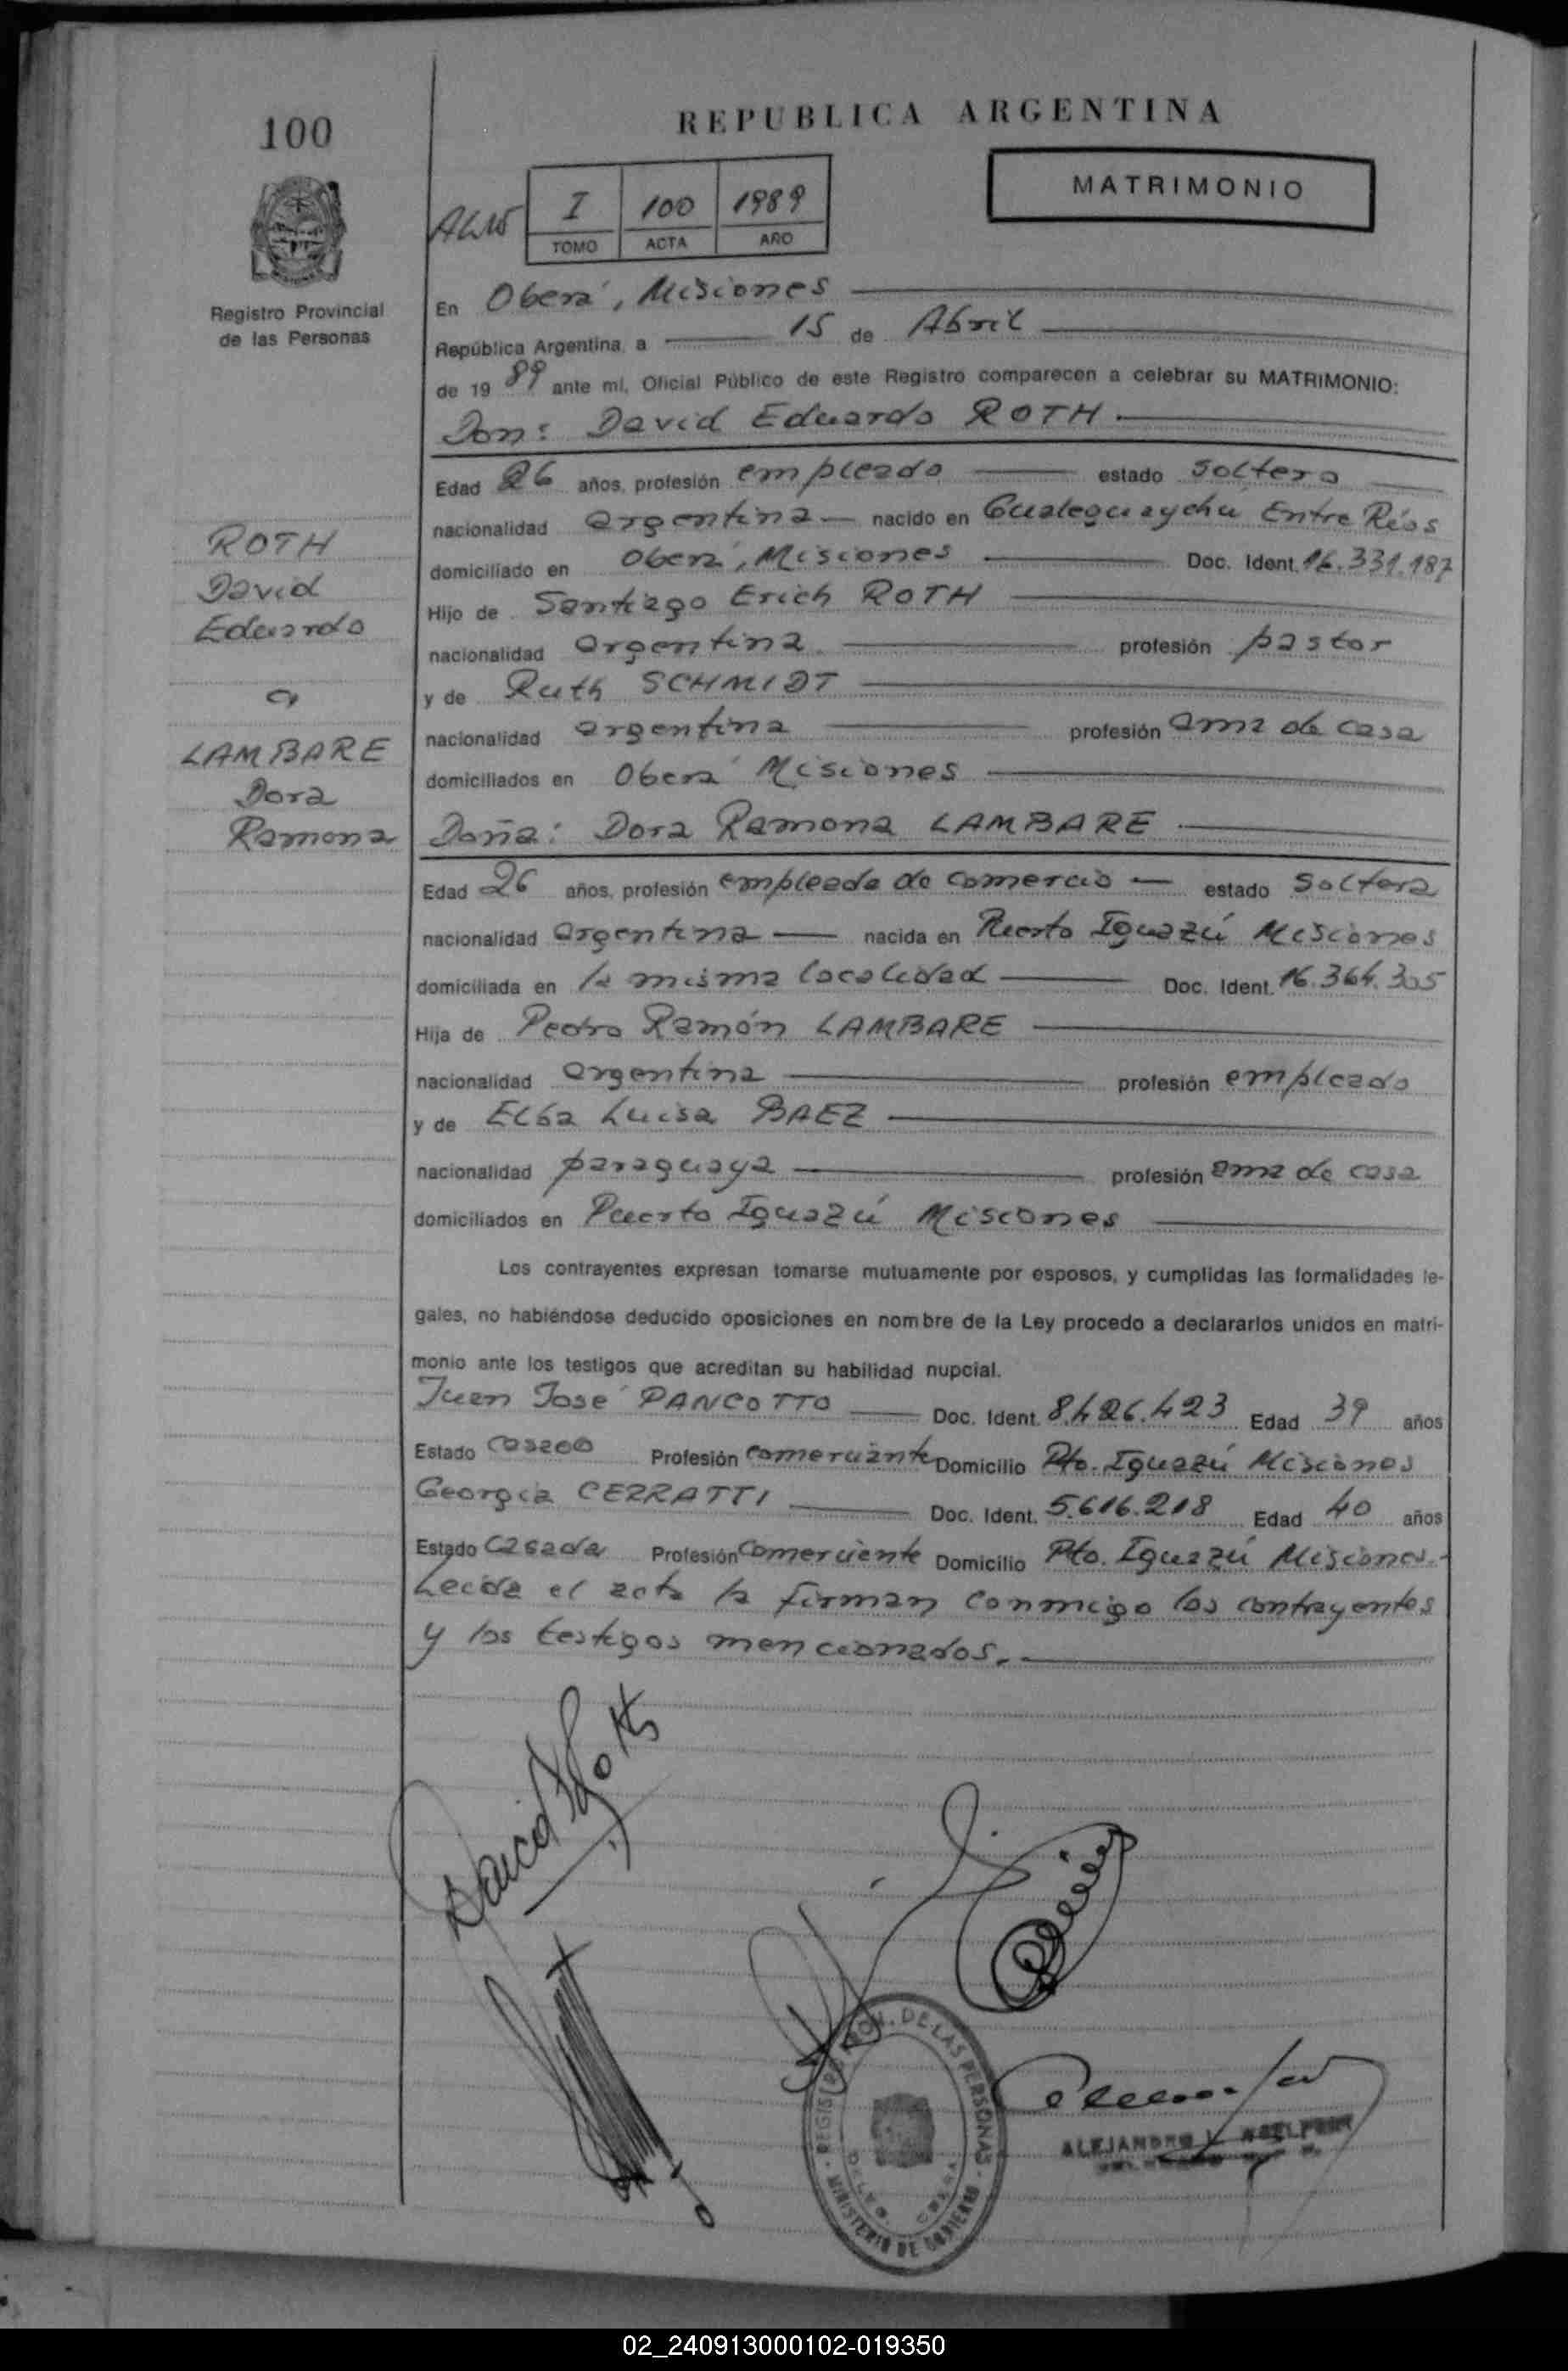 100
REPUBLICA ARGENTINA
MATRIMONIO
I 100 1989
TOMO ACTA AÑO
Registro Provincial
de las Personas
En Oberá, Misiones
República Argentina, a 15 de Abril
de 1989 ante mí, Oficial Público de este Registro comparecen a celebrar su MATRIMONIO:
Don: David Eduardo ROTH
Edad 26 años, profesión empleado estado soltero
nacionalidad argentina nacido en Gualeguaychú Entre Ríos
domiciliado en Oberá, Misiones Doc. Ident. 16.331.187
Hijo de Santiago Erich ROTH
nacionalidad argentina profesión pastor
y de Ruth SCHMIDT
nacionalidad argentina profesión ama de casa
domiciliados en Oberá Misiones
ROTH
David
Eduardo
c/
LAMBARE
Dora
Ramona
Doña: Dora Ramona LAMBARE
Edad 26 años, profesión empleada de comercio estado soltera
nacionalidad argentina nacida en Puerto Iguazú Misiones
domiciliada en la misma localidad Doc. Ident. 16.364.305
Hija de Pedro Ramón LAMBARE
nacionalidad argentina profesión empleado
y de Elba Luisa BAEZ
nacionalidad paraguaya profesión ama de casa
domiciliados en Puerto Iguazú Misiones
Los contrayentes expresan tomarse mutuamente por esposos, y cumplidas las formalidades le-
gales, no habiéndose deducido oposiciones en nombre de la Ley procedo a declararlos unidos en matri-
monio ante los testigos que acreditan su habilidad nupcial.
Juan José PANCOTTO Doc. Ident. 8.426.423 Edad 39 años
Estado casado Profesión comerciante Domicilio Pto. Iguazú Misiones
Georgia CERRATTI Doc. Ident. 5.616.218 Edad 40 años
Estado casada Profesión comerciente Domicilio Pto. Iguazú Misiones.-
Leída el acta la firman conmigo los contrayentes
y los testigos mencionados.
David Roth
REGISTRO PROV. DE LAS PERSONAS
MINISTERIO DE GOBIERNO
ALEJANDRO
02_240913000102-019350